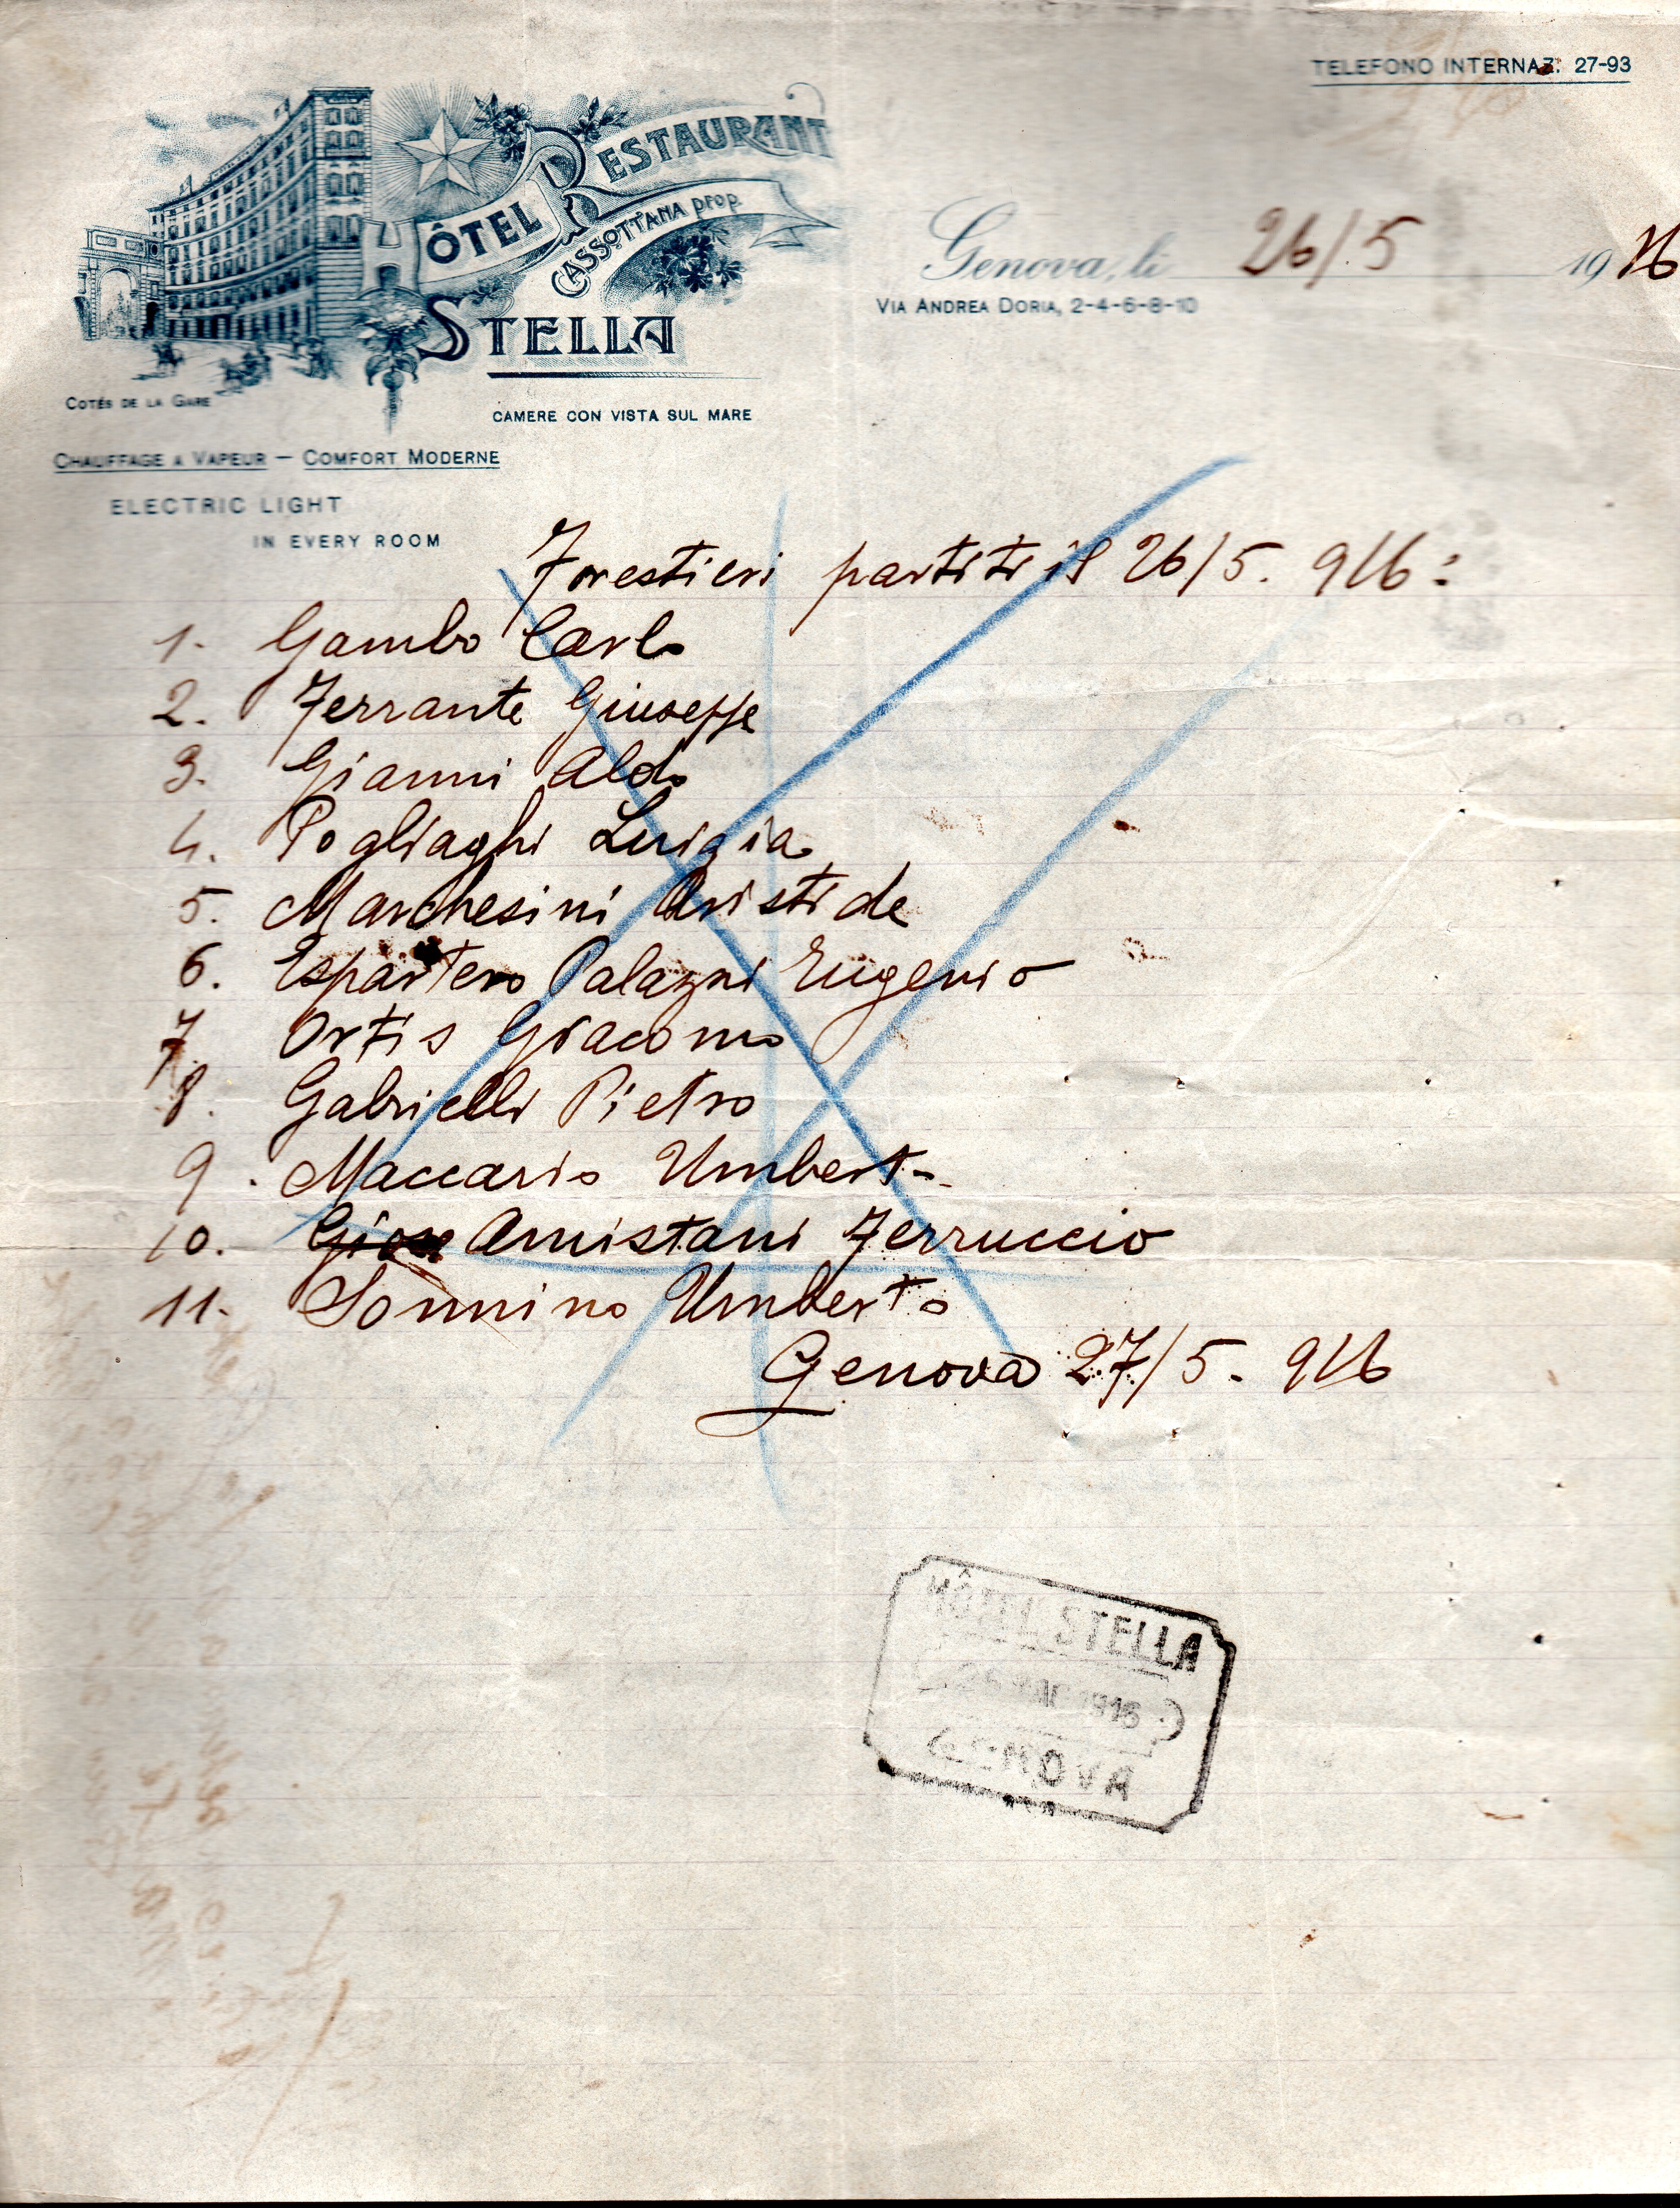 TELEFONO INTERNAZ. 27-93
HÔTEL RESTAURANT
CASSOTTANA prop.
STELLA
Genova, li 26/5 1916
VIA ANDREA DORIA, 2-4-6-8-10
COTÉS DE LA GARE
CAMERE CON VISTA SUL MARE
CHAUFFAGE A VAPEUR — COMFORT MODERNE
ELECTRIC LIGHT
IN EVERY ROOM
Forestieri partiti il 26/5. 916:
1. Gambo Carlo
2. Ferrante Giuseppe
3. Gianni Aldo
4. Pogliaghi Luigia
5. Marchesini Aristide
6. Espartero Palazzi Eugenio
7 Ortis Giacomo
8. Gabrielli Pietro
9. Maccario Umberto
10. Amistani Ferruccio
11. Sonnino Umberto
Genova 27/5. 916
HÔTEL STELLA
1916
GENOVA